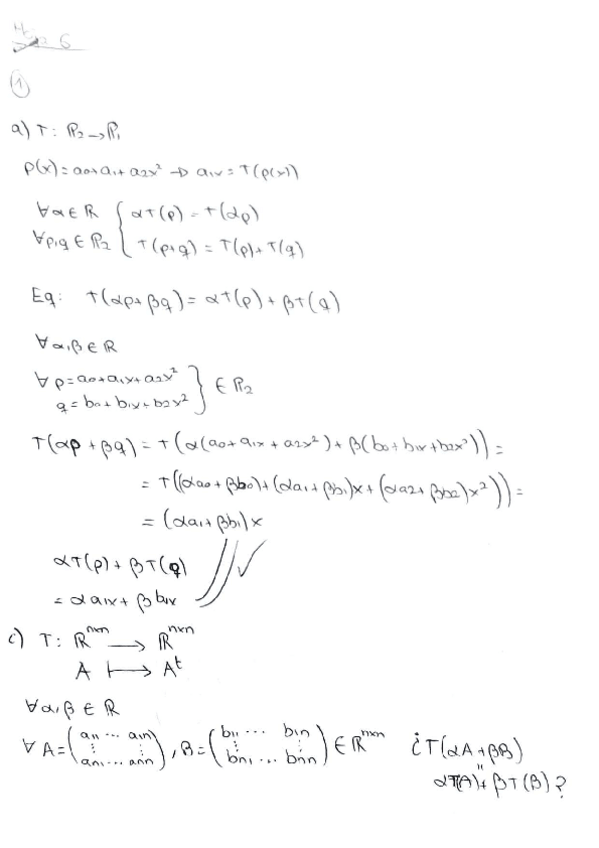 6
①
a) T: P₂→P₁
p(x)=a₀+a₁+a₂x² → a₁x = T(p(x))
∀α∈ℝ { αT(p) = T(αp)
∀p,q ∈ P₂ { T(p+q) = T(p)+T(q)
Eq: T(αp+βq) = αT(p) + βT(q)
∀α,β ∈ ℝ
∀ p=a₀+a₁x+a₂x²
q=b₀+b₁x+b₂x² } ∈ P₂
T(αp+βq) = T(α(a₀+a₁x+a₂x²)+β(b₀+b₁x+b₂x²)) =
= T((αa₀+βb₀)+(αa₁+βb₁)x+(αa₂+βb₂)x²)) =
= (αa₁+βb₁)x
αT(p)+βT(q) // ✓
= αa₁x + βb₁x
c) T: ℝⁿˣⁿ → ℝⁿˣⁿ
A ↦ Aᵗ
∀α,β ∈ ℝ
∀ A=(a₁₁ ... a₁ₙ ⋮ ⋮ aₙ₁ ... aₙₙ), B=(b₁₁ ... b₁ₙ ⋮ ⋮ bₙ₁ ... bₙₙ) ∈ ℝⁿˣⁿ ¿T(αA+βB)
"
αT(A)+βT(B)?